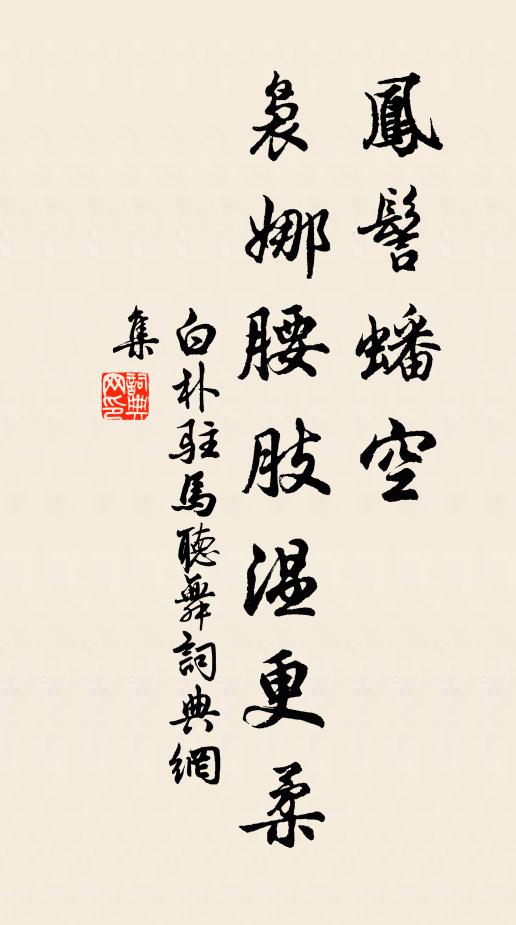 鳳髻蟠空
裊娜腰肢温更柔
白朴駐馬聽舞詞典網
集
詞典
网印